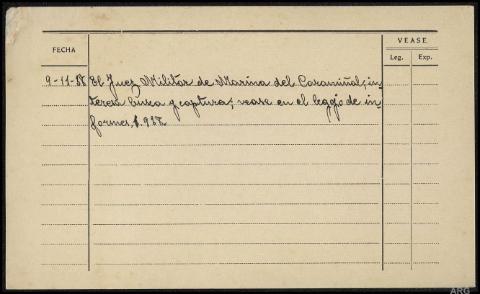 VEASE
FECHA
Leg. Exp.
El Juez Militar de Marina del Caramiñal; in-
teresa busca y captura; vease en el legajo de in-
formes,
ARG